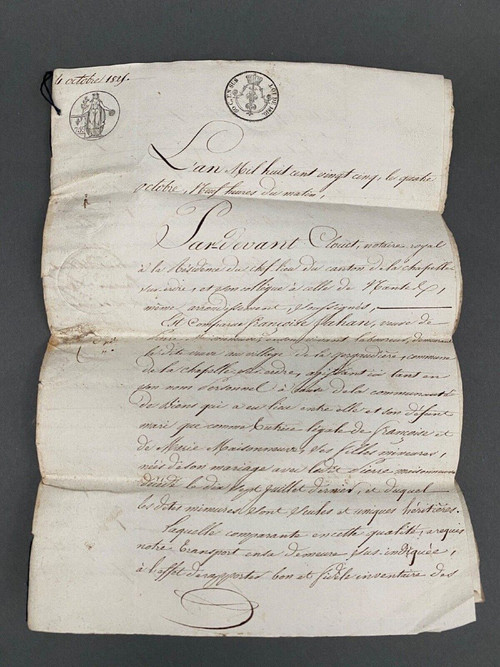 4 octobre 1825.
L'an Mil huit cent vingt cinq, le quatre
octobre, Neuf heures du matin,
Pardevant Clouet, notaire royal
à la Résidence du chef lieu du canton de la chapelle
sur erdre, et son collègue à celle de Nantes,
même arrondissement, soussignés,
Est Comparue françoise Jahan, veuve de
laboureur, demeurant
la dite veuve au village de la commune
de la chapelle sur erdre, agissant ici tant en
son nom Personnel à cause de la communauté
de Biens qui a eu lieu entre elle et son défunt
mari que comme tutrice légale de françoise et
de Marie Maisonneuve, ses filles mineures,
nées de son mariage avec ledit Pierre maisonneuve
décédé le dix sept Juillet dernier, et duquel
les dites mineures sont seules et uniques héritières.
Laquelle comparante en cette qualité, a requis
notre transport en sa demeure plus indiquée,
à l'effet de rapporter bon et fidèle inventaire des